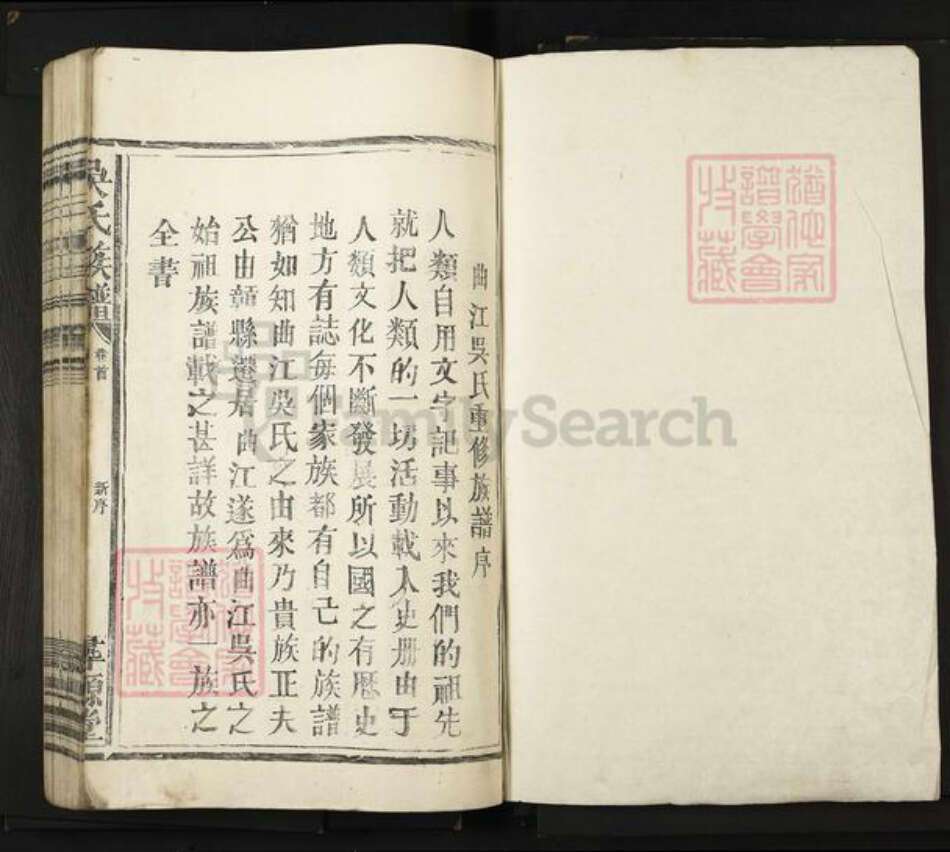 猶他家
譜學會
收藏
曲江吳氏重修族譜序
人類自用文字記事以來我們的祖先
就把人類的一切活動載入史册由于
人類文化不斷發展所以國之有歷史
地方有誌每個家族都有自己的族譜
猶如知曲江吳氏之由來乃貴族正夫
公由贛縣遷居曲江遂爲曲江吳氏之
始祖族譜載之甚詳故族譜亦一族之
全書
吳氏族譜
卷首
新序
猶他家
譜學會
收藏
FamilySearch